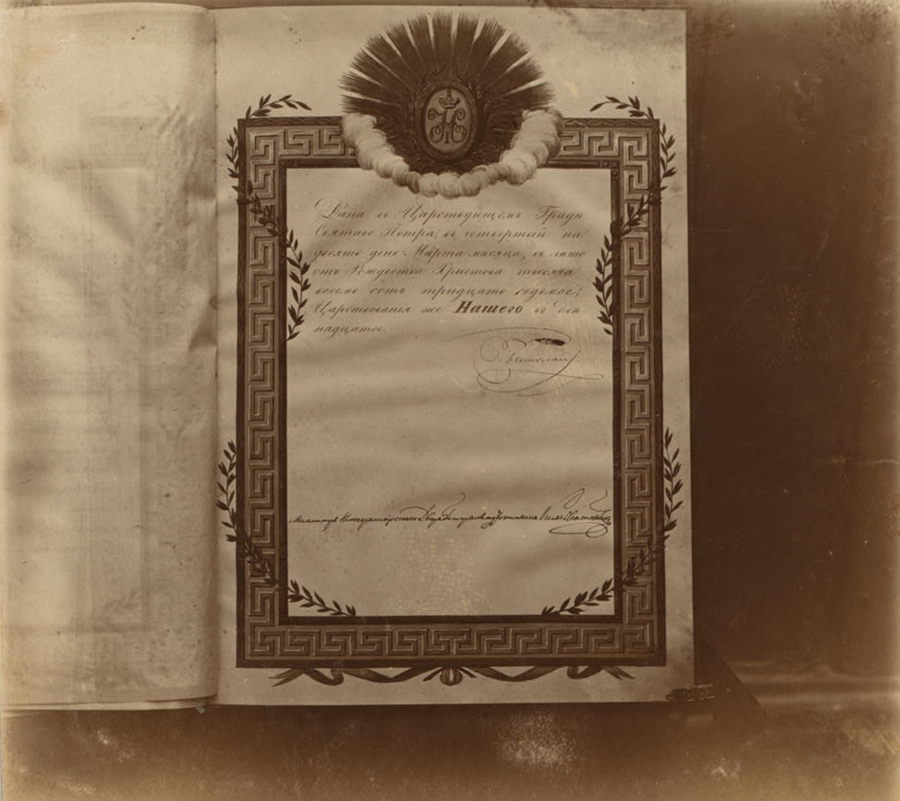 Дана въ Царствующемъ Градѣ
Святаго Петра, въ четвертый на
десять день Марта мѣсяца, въ лѣто
отъ Рождества Христова тысяча
восемь сотъ тридцать седьмое;
Царствованія же Нашего въ две
надцатое.
Николай
Министръ Императорскаго Двора Генералъ Адъютантъ Князь Волконскій